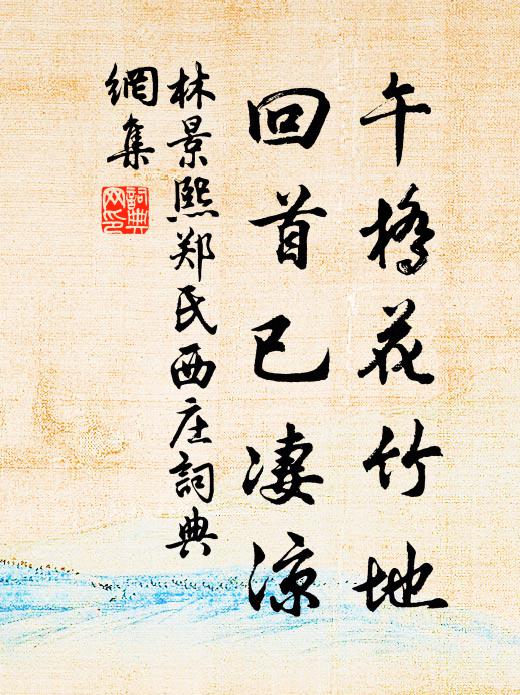 午橋花竹地
回首已凄涼
林景熙郑氏西庄詞典
網集
詞典
网印